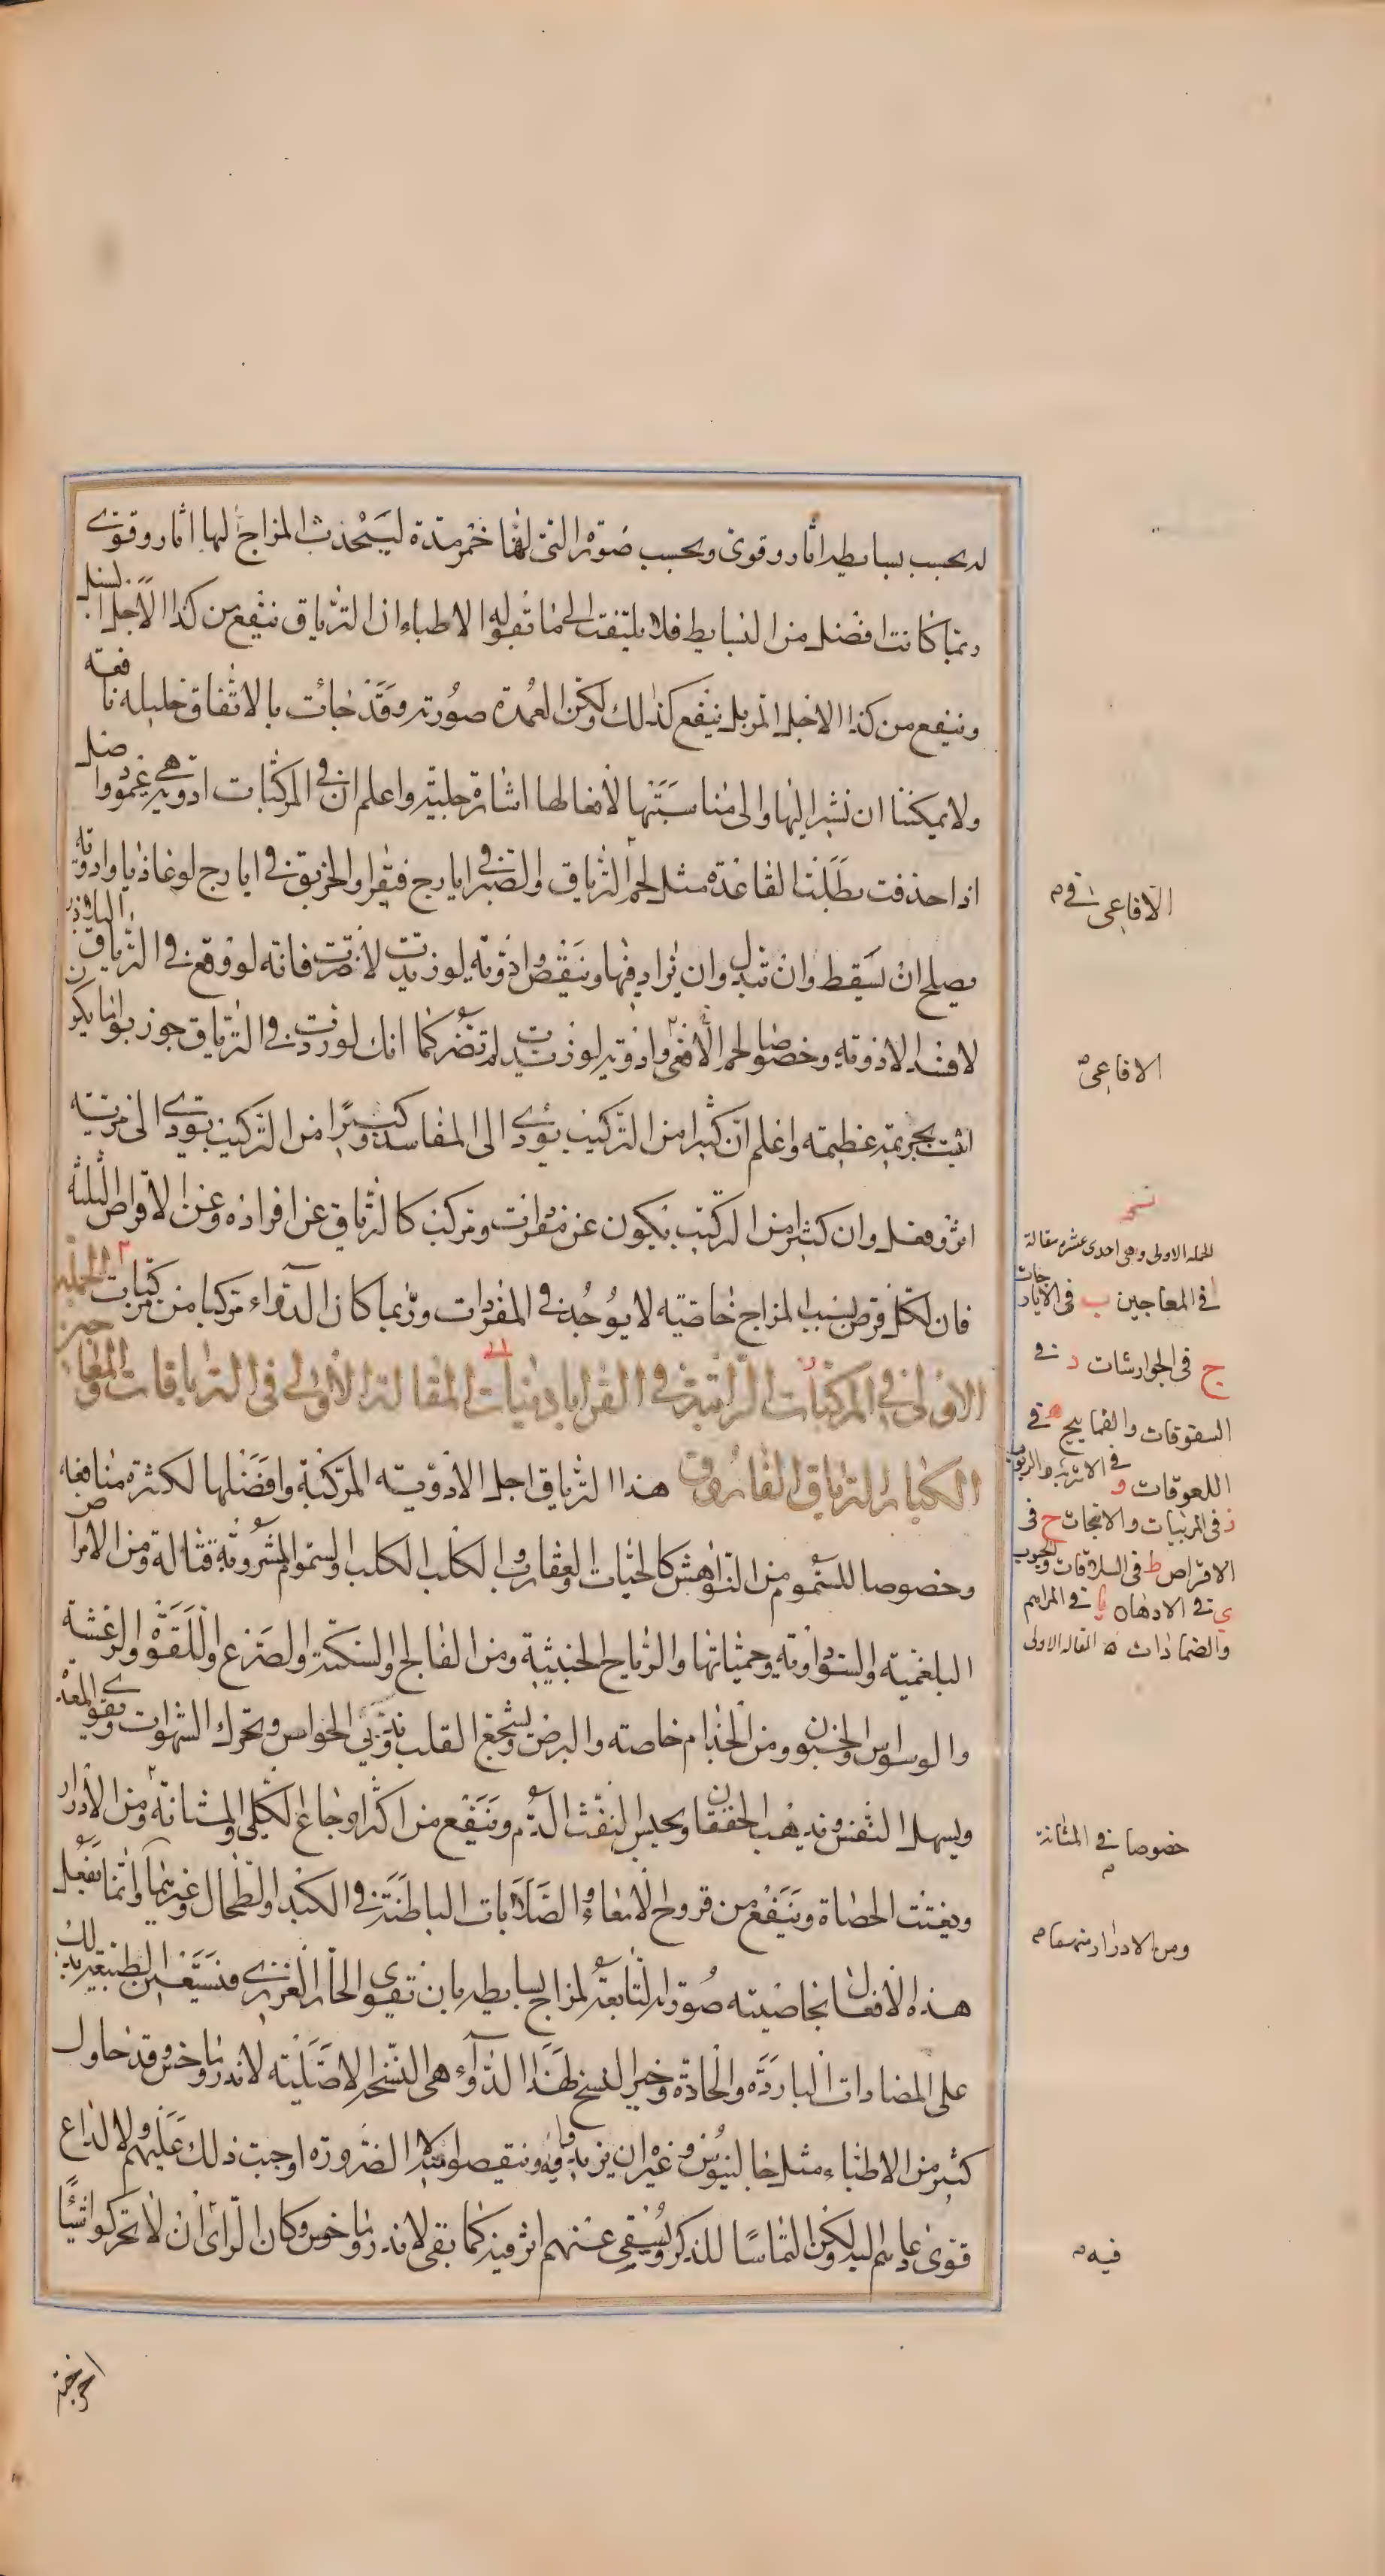 له بحسب بسايطه اثار وقوى وبحسب صورته التى لها خمر مدة ليستحدث المزاج لها اثار وقوى
ربما كانت افضل من البسايط فلا يلتفت الى ما تقوله الاطباء ان الترياق ينفع من كذا لاجل السنبل
وينفع من كذا لاجل المر بل ينفع كذلك ولكن العمدة صورته وقد جائت بالاتفاق جليله نافعه
ولا يمكننا ان نشير اليها والى مناسبتها لافعالها اشارة جلية واعلم ان فى المركبات ادوية هى عمود واصل
اذا حذفت بطلت القاعدة مثل لحم الترياق والصبر فى ايارج فيقرا والخربق فى ايارج لوغاذيا وادويه
يصلح ان تسقط وان تبدل وان يزاد فيها وينقص وادوية لو زيدت لاضرت فانه لو وقع فى الترياق البلاذر
لافسد الادويه وخصوصا لحم الافعى وادويه لو زيدت لم تضر كما انك لو زدت فى الترياق جوز بوا ما يكون
اتيت بجريمة عظيمه واعلم ان كثيرا من التركيب يؤدى الى المفاسد وكثيرا من التركيب يودى الى مزية
اثر وفعل وان كثيرا من التركيب يكون عن مفردات ومركب كالترياق عن افراده وعن الاقراص الثلثه
فان لكل قرص بسبب المزاج خاصيه لا يوجد فى المفردات وربما كان الدواء مركبا من مركبات الجمله
الاولى فى المركبات الراتبة فى القراباذينات المقالة الاولى فى الترياقات والمعاجين
الكبار الترياق الفاروق هذا الترياق اجل الادويه المركبة وافضلها لكثرة منافعه
وخصوصا للسموم من النواهش كالحيات والعقارب والكلب الكلب والسموم المشروبة قتالة ومن الامراض
البلغميه والسوداويه وحمياتها والرياح الخبيثة ومن الفالج والسكتة والصرع واللقوة والرعشة
والوسواس والجنون ومن الجذام خاصة والبرص ويشجع القلب ويذكى الحواس ويحرك الشهوات ويقوى المعدة
ويسهل التنفس ويذهب الخفقان ويحبس نفث الدم وينفع من اكثر اوجاع الكلى والمثانة ومن الادرار
ويفتت الحصاة وينفع من قروح الامعاء والصلابات الباطنة فى الكبد والطحال وغيرهما وانما يفعل
هذه الافعال بخاصيته صورته التابعة لمزاج بسايطه بان تقوى الحار الغريزى فتستعين الطبيعة بذلك
على المضادات الباردة والحادة وخير النسخ لهذا الدواء هى النسخة الاصلية لاندروماخس وقد حاول
كثير من الاطباء مثل جالينوس وغيره ان يزيدوا فيه وينقصوا منه لا لضرورة اوجبت ذلك عليهم ولا لداع
قوى دعاهم اليه ولكن التماسا للذكر وليبقى عنهم اثر فيه كما بقى لاندروماخس وكان الراى ان لا يحركوا شيئا
الافاعى فى
الافاعى
نسخه
الجمله الاولى وهى احدى عشره مقالة
ا فى المعاجين ب فى الايارجات
ج فى الجوارشات د فى
السفوفات والقمايح ه فى
اللعوقات و فى الاشربه والربوب
ز فى المربيات والانبجات ح فى
الاقراص ط فى السلاقات والحبوب
ى فى الادهان يا فى المراهم
والضمادات ه المقاله الاولى
خصوصا فى المثانة
ومن الادرار
فيه
اخرجته